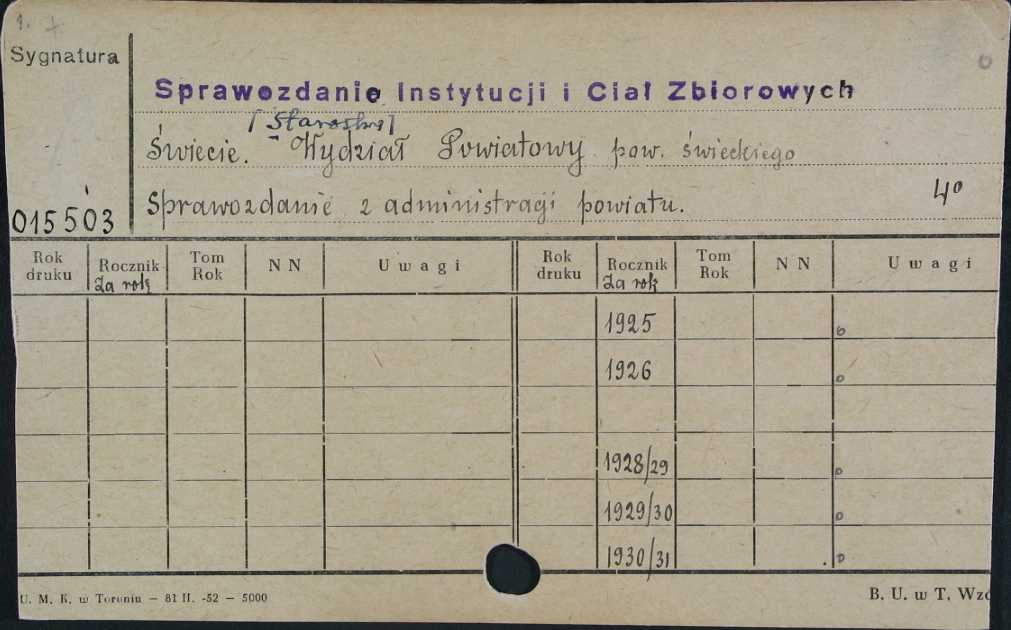 1.
Sygnatura
Sprawozdanie Instytucji i Ciał Zbiorowych
[Starostwo]
Świecie. Wydział Powiatowy pow. świeckiego
Sprawozdanie z administracji powiatu. 4°
015503
Rok druku Rocznik Za rok Tom Rok N N Uwagi Rok druku Rocznik Za rok Tom Rok N N Uwagi
1925 o
1926 o
1928/29 o
1929/30 o
1930/31 o
U. M. K. w Toruniu — 81 II. -52 — 5000 B. U. w T. Wzó